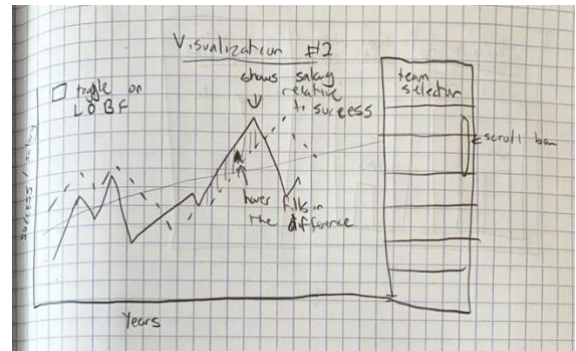 Visualization #2
toggle on
LOBF
shows salary
relative
to success
team
selector
scroll bar
hover fills in
the difference
success / salary
Years